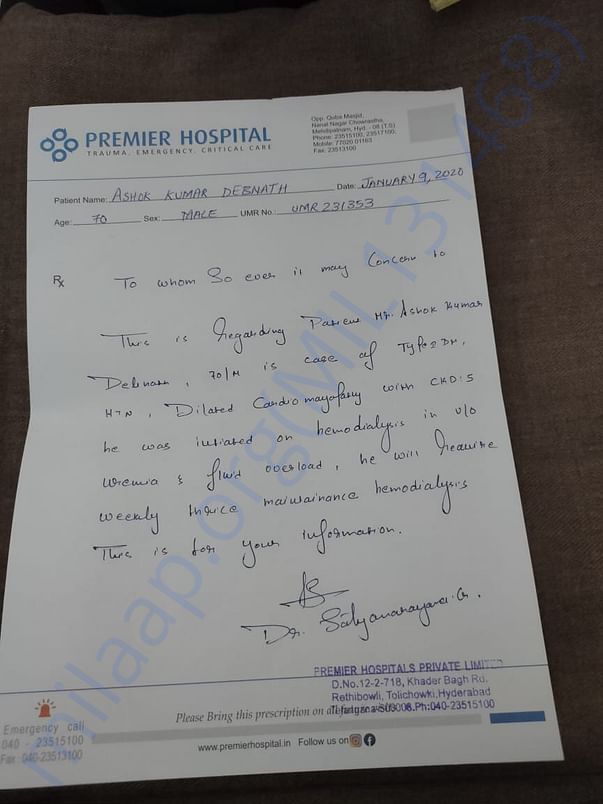 PREMIER HOSPITAL
TRAUMA. EMERGENCY. CRITICAL CARE
Opp. Quba Masjid,
Nanal Nagar Chowrastha,
Mehdipatnam, Hyd. - 08 (T.S)
Phone: 23515100, 23517100,
Mobile: 77020 01163
Fax: 23513100
Patient Name: ASHOK KUMAR DEBNATH Date: JANUARY 9, 2020
Age: 70 Sex: MALE UMR No.: UMR 231353
Rx
To whom So ever it may Concern to
This is Regarding Patient Mr. Ashok Kumar
Debnath, 70/M is case of Type 2 DM,
HTN, Dilated Cardiomayopathy with CKD:5
he was initiated on hemodialysis in v/o
uremia & fluid overload, he will Require
weekly thrice maintainance hemodialysis
This is for your information.
Dr. Satyanarayana. G.
PREMIER HOSPITALS PRIVATE LIMITED
D.No.12-2-718, Khader Bagh Rd,
Rethibowli, Tolichowki, Hyderabad
Telangana-500008.Ph:040-23515100
Please Bring this prescription on all
Emergency call
040 - 23515100
Fax : 040-23513100
www.premierhospital.in Follow us on
milaap.org(MIL131468)